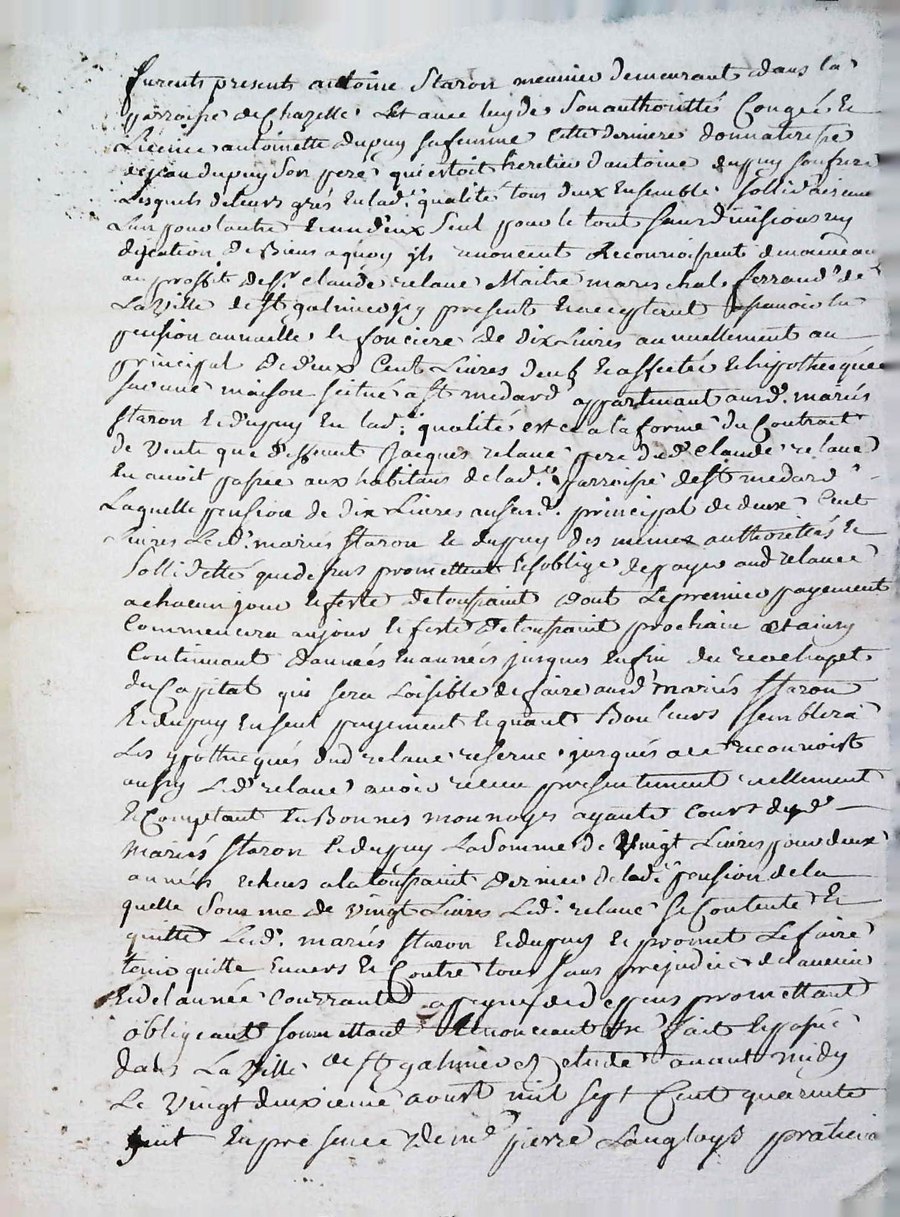 furent present antoine Staron meunier demeurant dans la
parroisse de Chazelle Et avec luy de Son authoritté Congé Et
Licence antoinette dupuy sa femme Cette derniere donnatrisse
de jean dupuy Son pere qui estoit heretier d'antoine dupuy Son frere
Lesquels de leurs grés En lad.e qualité tous deux Ensemble Sollidairemt
L'un pour l'autre Et un d'eux Seul pour le tout Sans division ny
discution de Biens a quoy ils renoncent Reconnoissent de nouveau
au proffit de Sr. Claude relave Maitre mareschal ferrand de
La Ville de St galmier icy present Et acceptent Scavoir la
pension annuelle Et fonciere de dix Livres annuellement au
principal de deux Cent Livres deuë Et affectée Et hipothecquée
Sur une maison scituée a St medard appartenant aux d. mariés
Staron Et dupuy En lad.e qualité est Ce a la forme du Contract
de Vente que deffunt Jacques relave pere dud. Claude relave
En avoit passée aux habitans de lad.e parroisse de St medard
Laquelle pension de dix Livres aususd. principal de deux Cent
Livres Lesd. mariés Staron Et dupuy des mêmes authorittés Et
Sollidetté que dessus promettent Et s'oblige de payer aud relave
a chacun jour Et feste de toussaint dont Le premier payement
Commencera au jour Et feste de toussaint prochain Et ainsy
Continuant d'années En années jusques Enfin du reachapt
du Capital qui sera Loisible de faire ausd mariés Staron
Et dupuy En seul payement Et quant Bon leurs Semblera
Les ypothecqués dud relave reservé jusques a ce reconnoist
aussy Led. relave avoir receu presentement reellement
Et Comptant En Bonnes monnoyes ayants Cours desd
mariés Staron Et dupuy La Somme de Vingt Livres pour deux
années Echeus a la toussaint derniere de lad.e pension de la
quelle Somme de Vingt Livres Led. relave Se Contente Et
quitte Lesd. mariés Staron Et dupuy Et promet Le faire
tenir quitte Envers Et Contre tous Sans prejudice de l'avenir
Et de l'année Courrante a peyne de depens promettant
obligeant Soumettant Renonceant fait Et passé
dans La Ville de St galmier Et Etude avant midy
Le Vingt deuxieme aoust mil sept Cent quarente
huit En presence de me pierre Langloys praticien